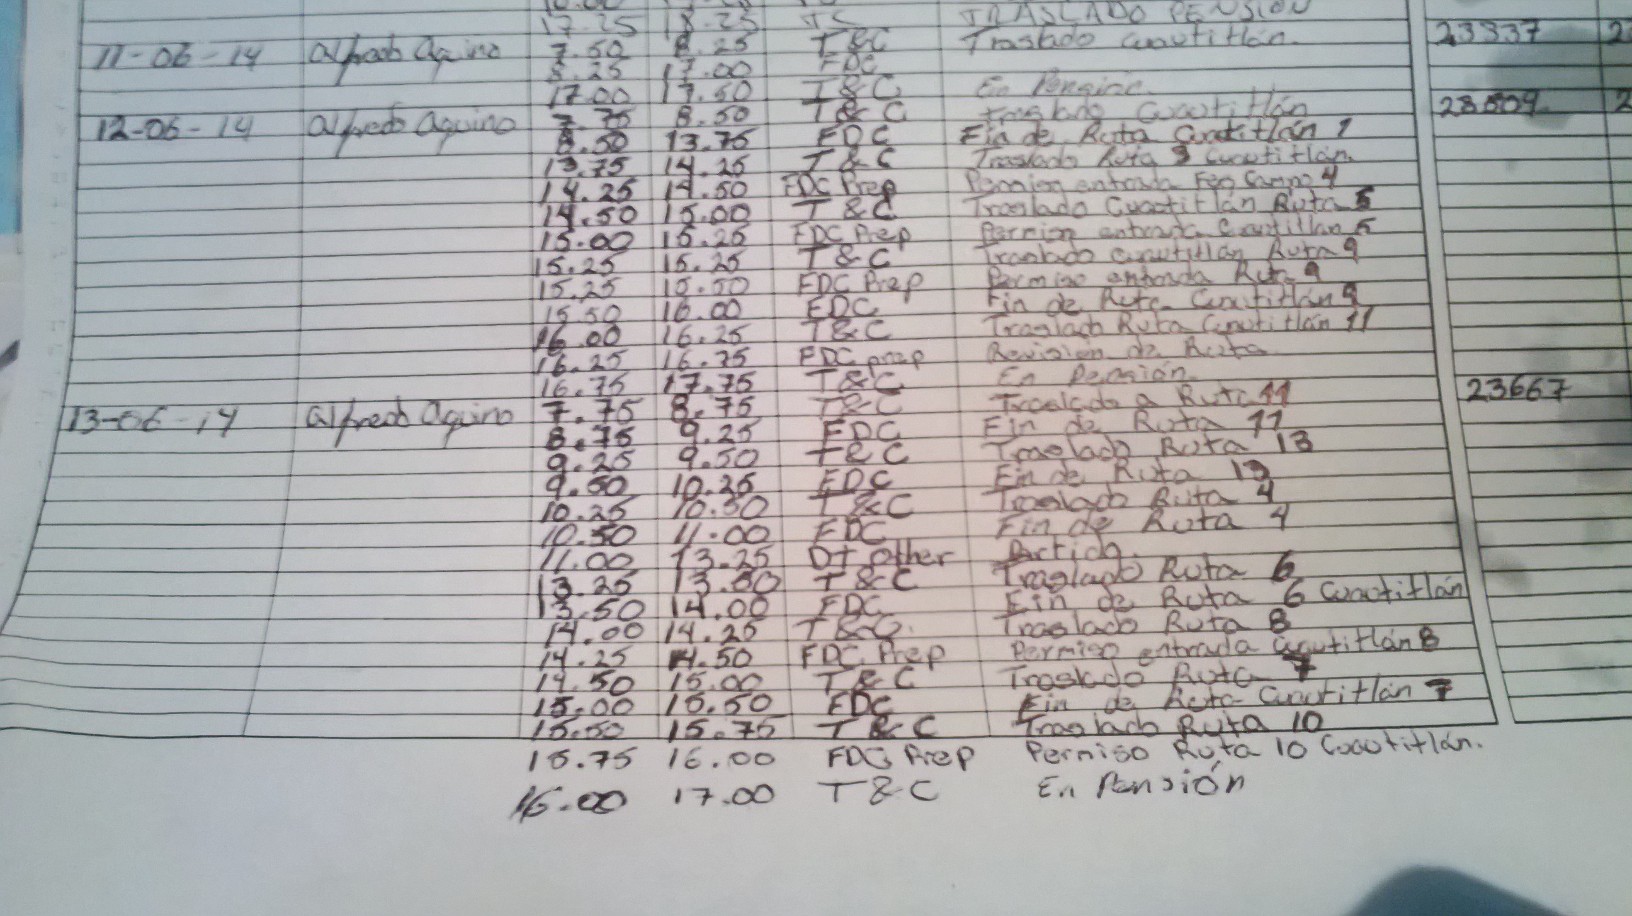 17.25 18.25 TC TRASLADO PENSION
11-06-14 Alfredo Aquino 7.50 8.25 T&C Traslado Cuautitlán. 23337
8.25 17.00 FDC
17.00 17.50 T&C En Pensión.
12-06-14 Alfredo Aquino 7.75 8.50 T&C Traslado Cuautitlán
8.50 13.75 FDC Fin de Ruta Cuatitlán 1
13.75 14.25 T&C Traslado Ruta 3 Cuautitlán.
14.25 14.50 FDC Prep Permiso entrada Campo 4
14.50 15.00 T&C Traslado Cuautitlán Ruta 5
15.00 15.25 FDC Prep Permiso entrada Cuautitlan 5
15.25 15.25 T&C Traslado Cuautitlán Ruta 9
15.25 15.50 FDC Prep Permiso entrada Ruta 9
15.50 16.00 FDC Fin de Ruta Cuautitlán 9
16.00 16.25 T&C Traslado Ruta Cuautitlán 11
16.25 16.75 FDC prep Revision de Ruta
16.75 17.75 T&C En Pensión.
13-06-14 Alfredo Aquino 7.75 8.75 T&C Traslado a Ruta 11 23667
8.75 9.25 FDC Fin de Ruta 11
9.25 9.50 T&C Traslado Ruta 13
9.50 10.25 FDC Fin de Ruta 13
10.25 10.50 T&C Traslado Ruta 4
10.50 11.00 FDC Fin de Ruta 4
11.00 13.25 DT other
13.25 13.50 T&C Traslado Ruta 6
13.50 14.00 FDC Fin de Ruta 6 Cuautitlán
14.00 14.25 T&C. Traslado Ruta 8
14.25 14.50 FDC Prep Permiso entrada Cuautitlán 8
14.50 15.00 T&C Traslado Ruta 7
15.00 15.50 FDC Fin de Ruta Cuautitlán 7
15.50 15.75 T&C Traslado Ruta 10
15.75 16.00 FDC Prep Permiso Ruta 10 Cuautitlán.
16.00 17.00 T&C En Pensión